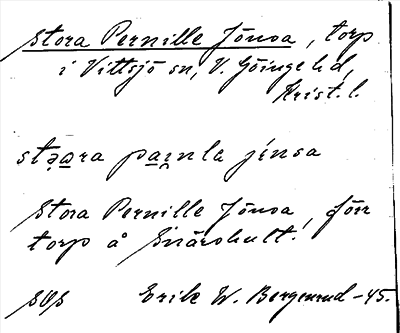 Stora Pernille Jönsa, torp
i Vittsjö sn, V. Göinge hd,
Krist. l.
Stora Pernille Jönsa, förr
torp å Snärshult.
Erik W. Bergenrud -45.